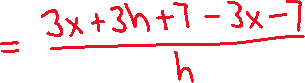 = \frac{3x+3h+7-3x-7}{h}